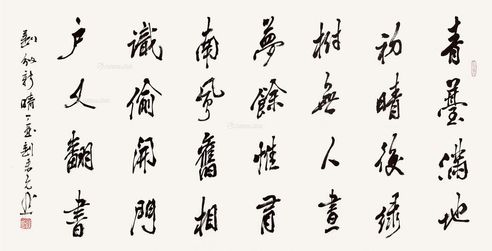 青薹滿地
初晴後綠
樹無人晝
夢餘惟有
南風舊相
識偷開門
户又翻書
劉攽新晴丁亥劉